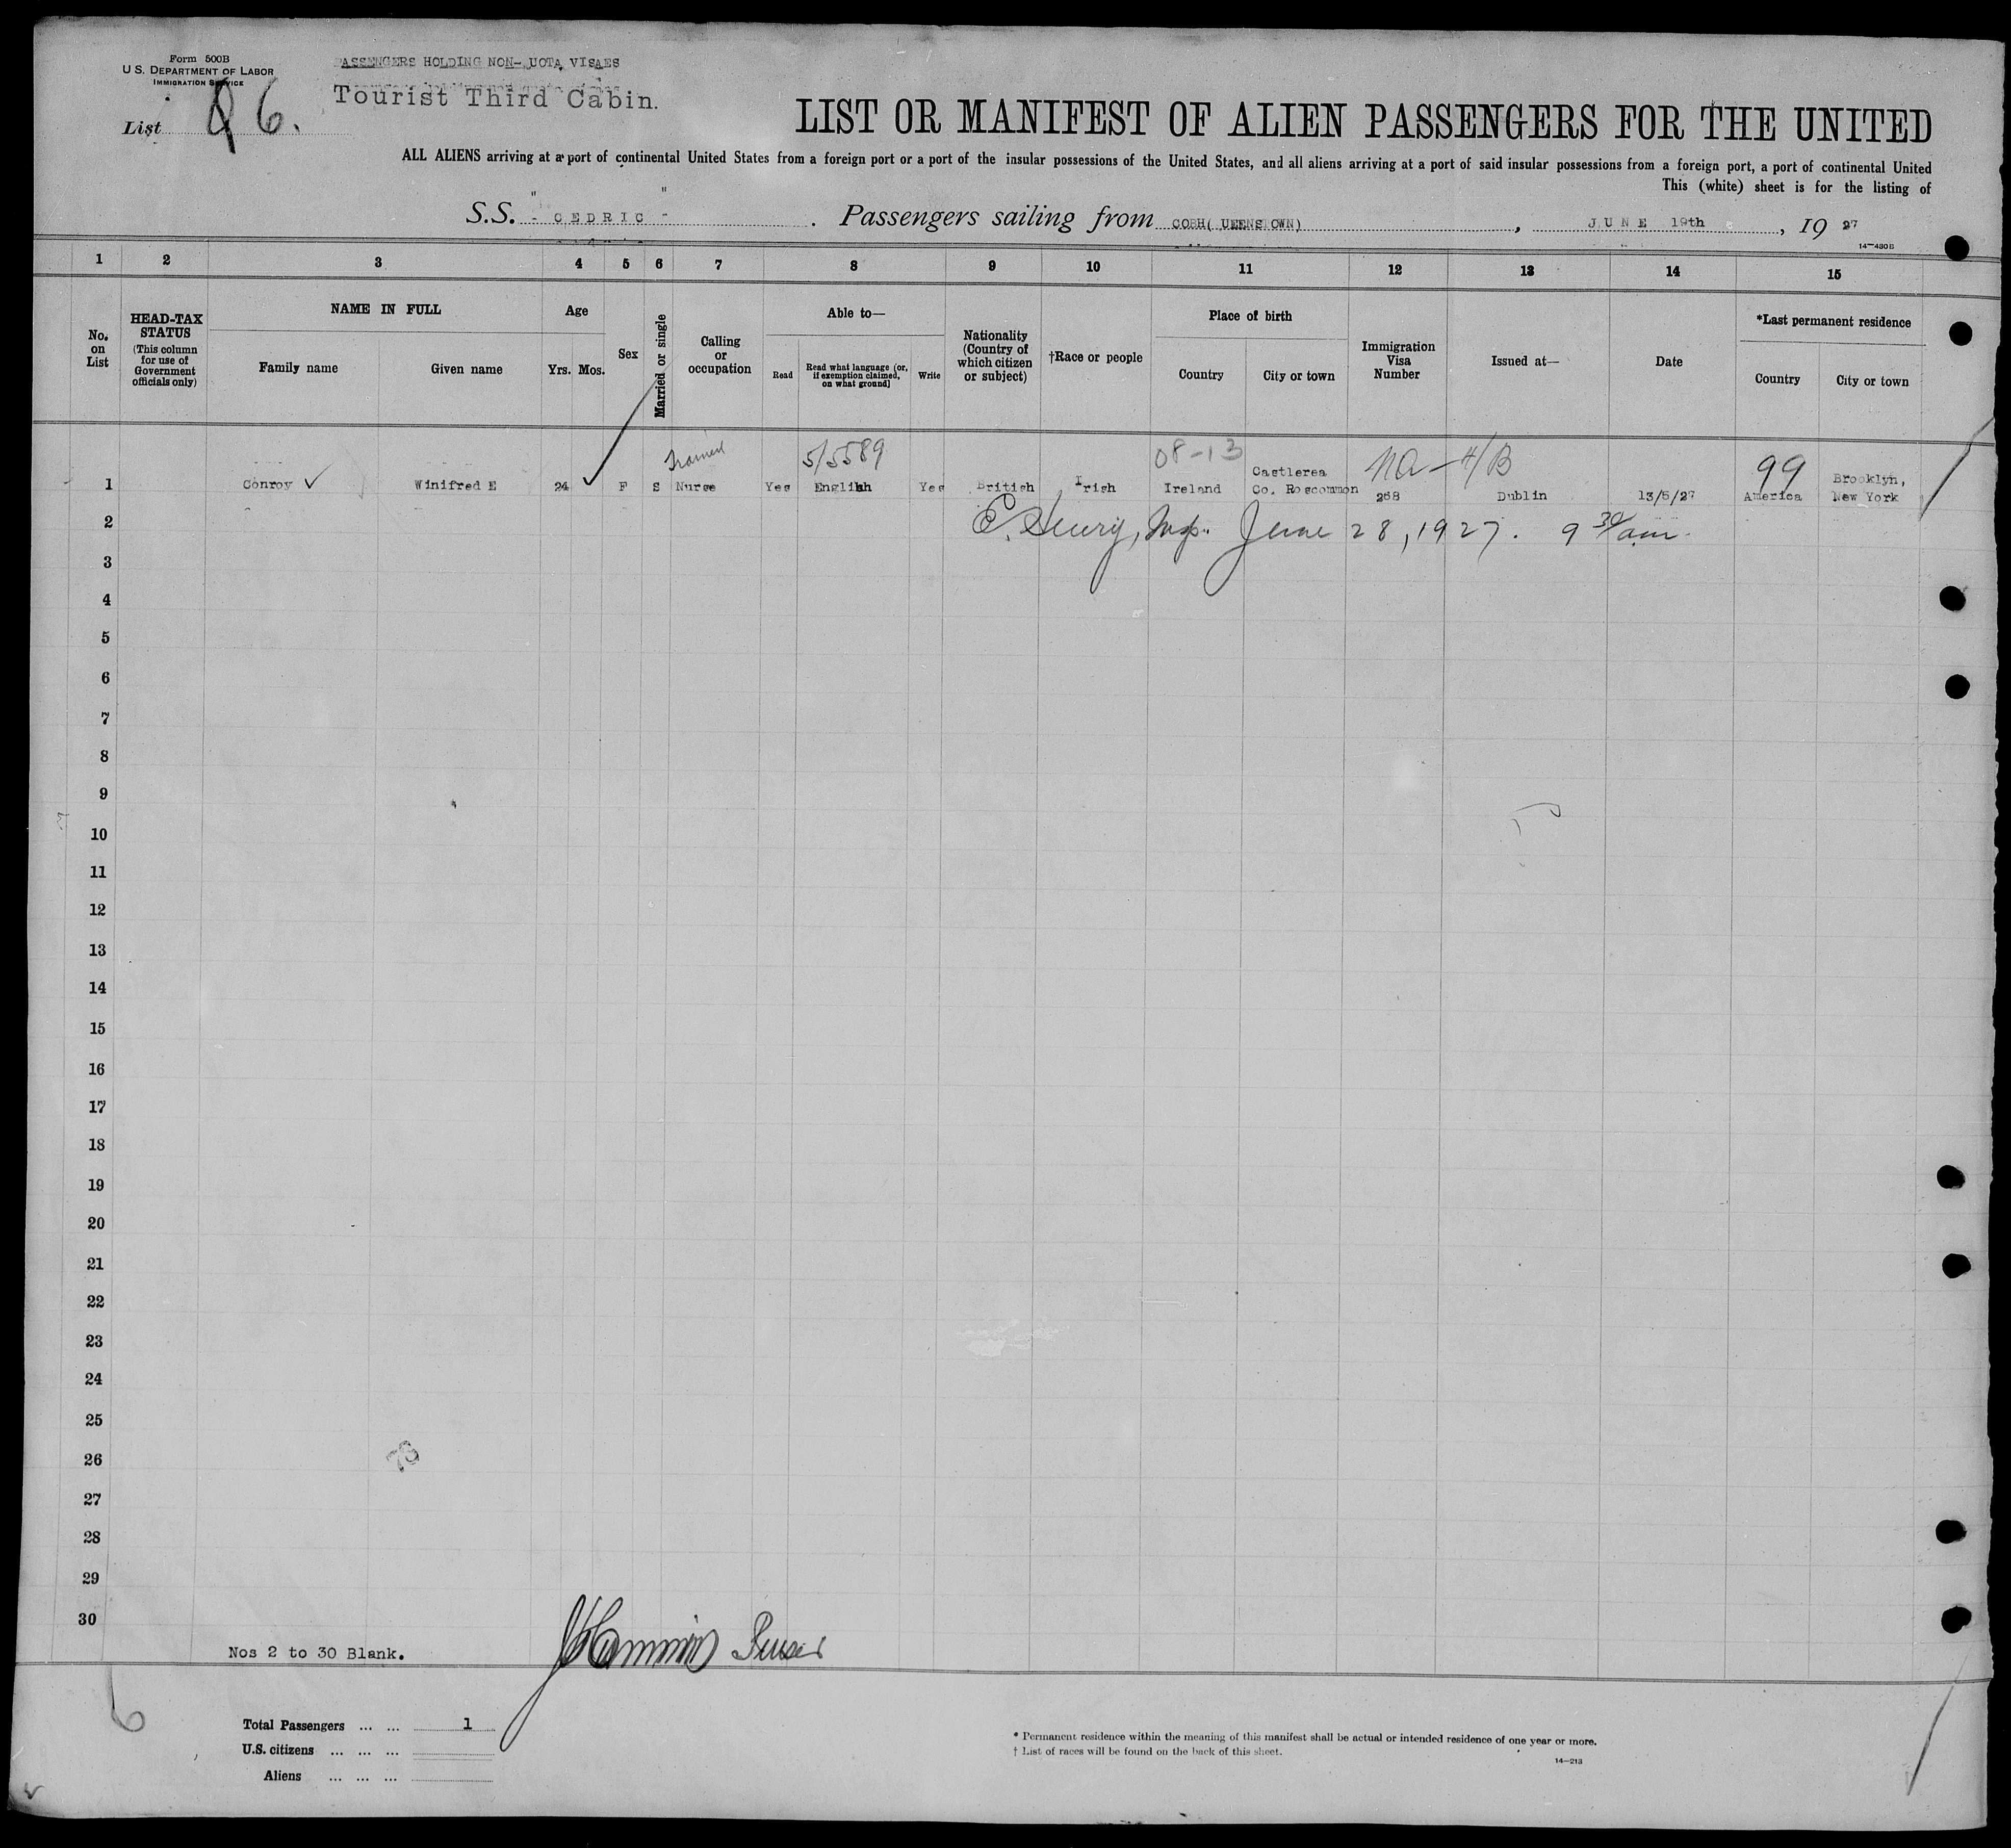 Form 500B
U. S. DEPARTMENT OF LABOR
IMMIGRATION SERVICE
PASSENGERS HOLDING NON- UOTA VISAES
Tourist Third Cabin.
List 6.
LIST OR MANIFEST OF ALIEN PASSENGERS FOR THE UNITED
ALL ALIENS arriving at a port of continental United States from a foreign port or a port of the insular possessions of the United States, and all aliens arriving at a port of said insular possessions from a foreign port, a port of continental United
This (white) sheet is for the listing of
S.S. " CEDRIC " . Passengers sailing from COBH( UEENSTOWN) , JUNE 19th , 19 27
14—430B
1 2 3 4 5 6 7 8 9 10 11 12 13 14 15
No. on List
HEAD-TAX STATUS (This column for use of Government officials only)
NAME IN FULL
Family name Given name
Age
Yrs. Mos.
Sex
Married or single
Calling or occupation
Able to—
Read Read what language (or, if exemption claimed, on what ground) Write
Nationality (Country of which citizen or subject)
†Race or people
Place of birth
Country City or town
Immigration Visa Number
Issued at—
Date
*Last permanent residence
Country City or town
Trained 5/5589 08-13 NA-4/B 99
1 Conroy Winifred E 24 F S Nurse Yes English Yes British Irish Ireland Castlerea Co. Roscommon 268 Dublin 13/5/27 America Brooklyn, New York
2 June 28, 1927. 9 30/am.
3
4
5
6
7
8
9
10
11
12
13
14
15
16
17
18
19
20
21
22
23
24
25
26
76
27
28
29
30
Nos 2 to 30 Blank. Purser
6
Total Passengers ... ... 1
U.S. citizens ... ... ...
Aliens ... ... ...
* Permanent residence within the meaning of this manifest shall be actual or intended residence of one year or more.
† List of races will be found on the back of this sheet.
14—213